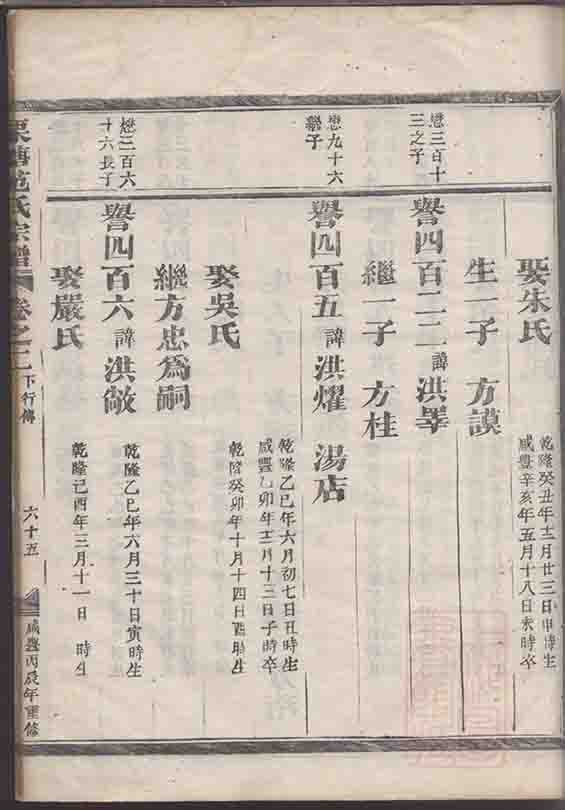 娶朱氏
乾隆癸丑年十二月廿三日申時生
咸豐辛亥年五月十八日未時卒
生一子 方謨
懋三百十
三之子
譽四百二二 諱 洪
繼一子 方桂
懋九十六
譽四百五 諱 洪燿 湯店
乾隆乙巳年六月初七日丑時生
咸豐乙卯年十二月十三日子時卒
娶吳氏
乾隆癸卯年十月十四日酉時生
繼方忠爲嗣
懋二百六
十六長子
譽四百六 諱 洪敞
乾隆乙巳年六月三十日寅時生
娶嚴氏
乾隆己酉年三月十一日 時生
范氏宗譜
卷之三 下行傳
六十五
咸豐丙辰年重修